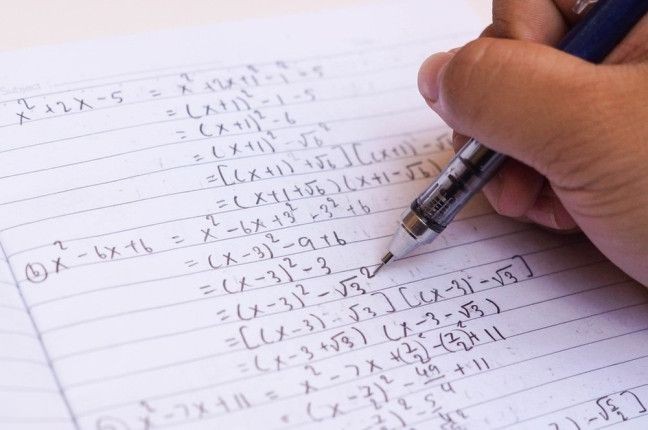 Subject
x² + 2x - 5 = x² + 2x + 1² - 1² - 5
= (x+1)² - 1 - 5
= (x+1)² - 6
= (x+1)² - √6²
= [(x+1) + √6] [(x+1) - √
= (x+1+√6)(x+1-√6)
(b) x² - 6x + 6 = x² - 6x + 3² - 3² + 6
= (x-3)² - 9 + 6
= (x-3)² - 3
= (x-3)² - √3²
= [(x-3) - √3] [(x-3) - √3]
= (x-3+√3) (x-3-√3)
x² - 7x + 11 = x² - 7x + (7/2)² - (7/2)² + 11
(x - 7/2)² - 49/4 + 11
)² - 5/4
) - √5/2]